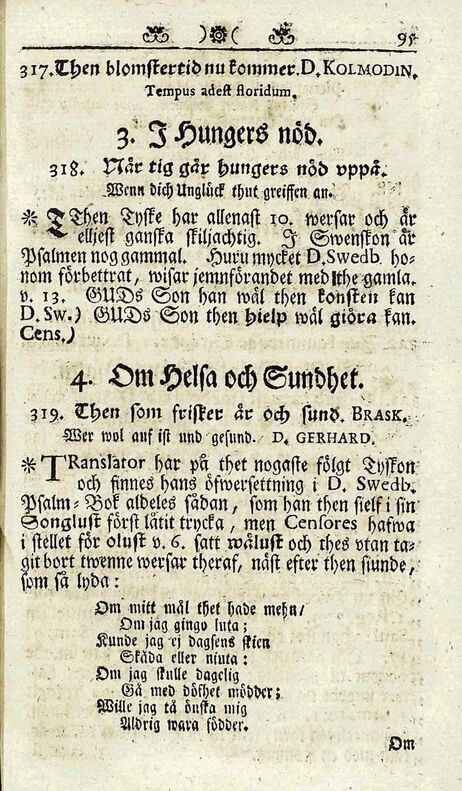 )o( 95
317. Then blomstertid nu kommer. D. KOLMODIN.
Tempus adest floridum.
3. I Hungers nöd.
318. När tig går hungers nöd vppå.
Wenn dich Unglück thut greiffen an.
* TThen Tyske har allenast 10. wersar och är
elljest ganska skiljachtig. I Swenskon är
Psalmen nog gammal. Huru mycket D. Swedb. ho-
nom förbettrat, wisar jemnförandet med the gamla.
v. 13. GUDs Son han wäl then konsten kan
D. Sw.) GUDs Son then hielp wäl giöra kan.
Cens.)
4. Om Helsa och Sundhet.
319. Then som frisker är och sund. BRASK.
Wer wol auf ist und gesund. D. GERHARD.
* TRanslator har på thet nogaste fölgt Tyskon
och finnes hans öfwersettning i D. Swedb.
Psalm-Bok aldeles sådan, som han then sielf i sin
Songlust först låtit trycka, men Censores hafwa
i stellet för olust v. 6. satt wälust och thes vtan ta-
git bort twenne wersar theraf, näst efter then siunde,
som så lyda:
Om mitt mål thet hade mehn/
Om jag gingo luta;
Kunde jag ej dagsens skien
Skåda eller niuta:
Om jag skulle dagelig
Gå med döfhet mödder;
Wille jag tå önska mig
Aldrig wara födder.
Om